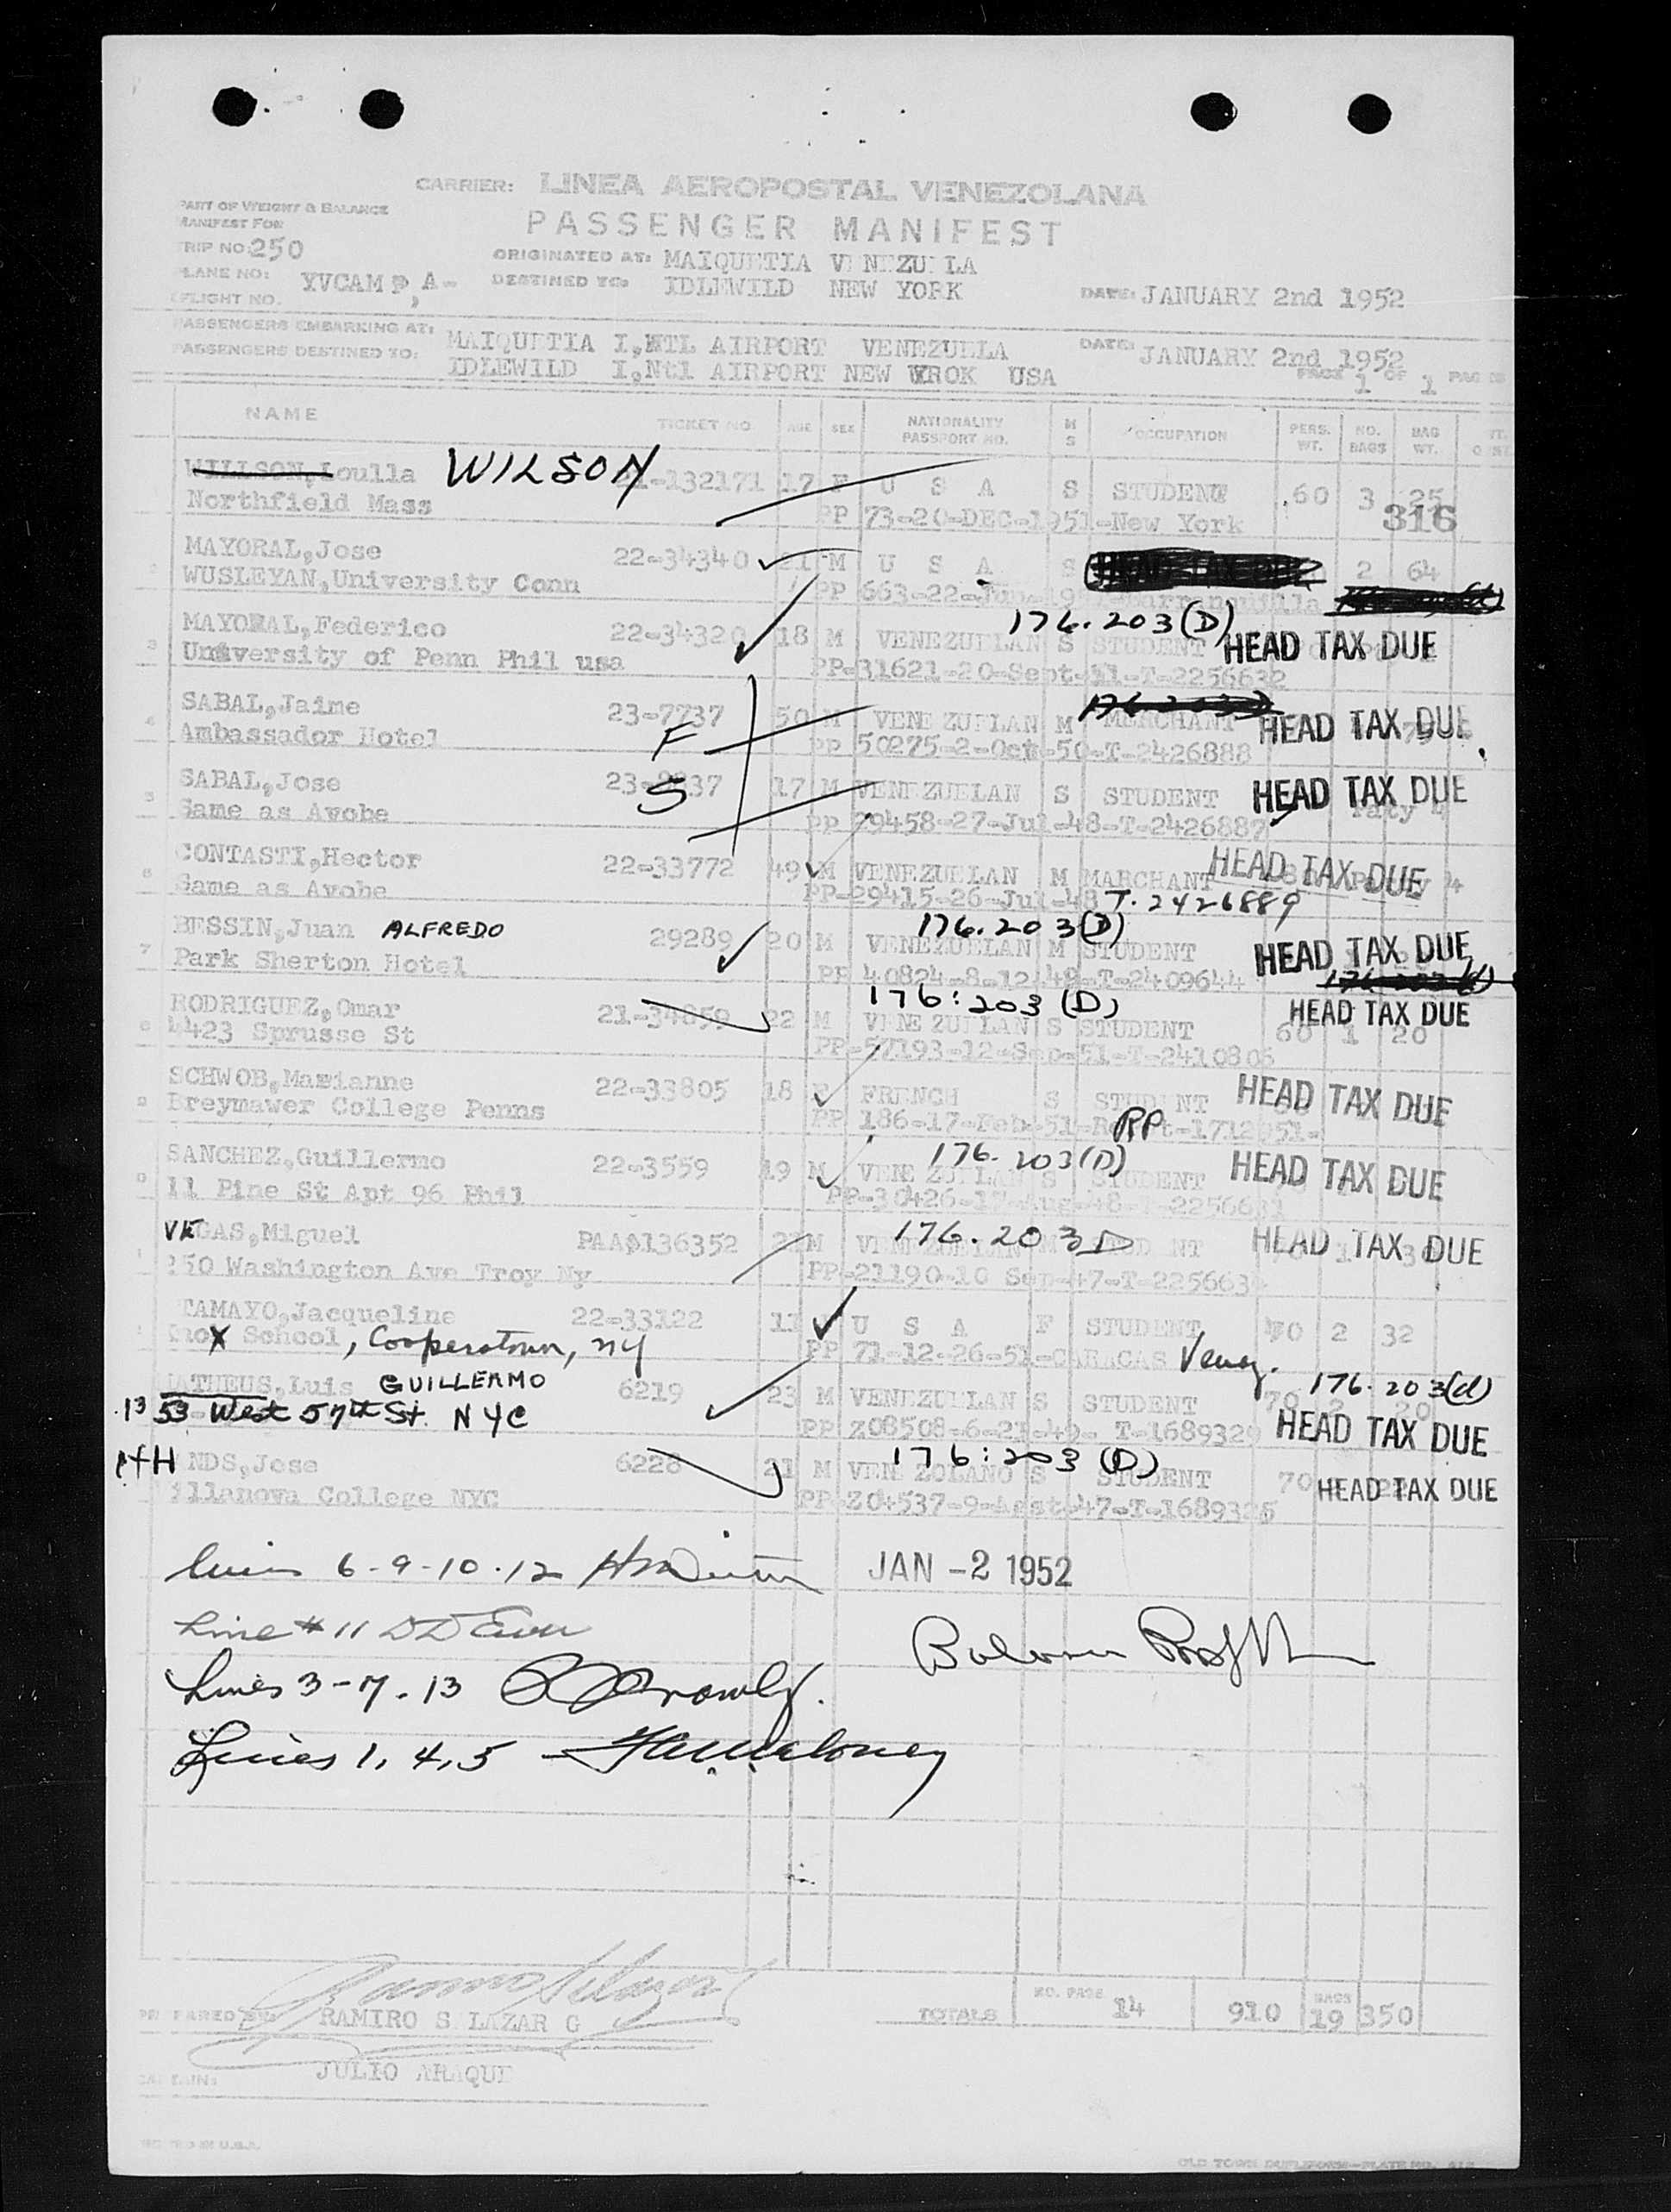 CARRIER: LINEA AEROPOSTAL VENEZOLANA
PART OF WEIGHT & BALANCE
MANIFEST FOR
PASSENGER MANIFEST
TRIP NO: 250
ORIGINATED AT: MAIQUETIA VENEZUELA
PLANE NO: YVCAM P A-
DESTINED TO: IDLEWILD NEW YORK
DATE: JANUARY 2nd 1952
FLIGHT NO.
PASSENGERS EMBARKING AT: MAIQUETIA I,NTL AIRPORT VENEZUELLA
DATE: JANUARY 2nd 1952
PASSENGERS DESTINED TO: IDLEWILD I,Ntl AIRPORT NEW YROK USA
PAGE 1 OF 1 PAGES
NAME TICKET NO AGE SEX NATIONALITY PASSPORT NO. M S OCCUPATION PERS. WT. NO. BAGS BAG WT.
WILLSON, Loulla WILSON 21-132171 17 F U S A S STUDENT 60 3 25
Northfield Mass PP 73-20-DEC-1951-New York 316
MAYORAL,Jose 22-34340 21 M U S A S 2 64
WUSLEYAN,University Conn PP 663-22-Jun-19 Barranquilla
176.203(D)
MAYORAL,Federico 22-34320 18 M VENEZUELAN S STUDENT HEAD TAX DUE
University of Penn Phil usa PP-31621-20-Sept-11-T-2256632
SABAL,Jaime 23-7737 50 M VENEZUELAN M MERCHANT HEAD TAX DUE
Ambassador Hotel F PP 50275-2-Oct-50-T-2426888
SABAL,Jose 17 M VENEZUELAN S STUDENT HEAD TAX DUE
Same as Avobe S PP 79458-27-Jul-48-T-2426887
CONTASTI,Hector 22-33772 49 M VENEZUELAN M MARCHANT HEAD TAX DUE
Same as Avobe PP-29415-26-Jul-48 T. 2426889
176.203(D)
BESSIN,Juan ALFREDO 29289 20 M VENEZUELAN M STUDENT HEAD TAX DUE
Park Sherton Hotel PP 40824-8-12-48-T-2409644
176:203 (D)
RODRIGUEZ,Omar 21-34859 22 M VENEZUELAN S STUDENT HEAD TAX DUE
4423 Sprusse St 60 1 20
PP-57193-12-Sep-51-T-2410806
SCHWOB,Marianne 22-33805 18 F FRENCH S STUDENT HEAD TAX DUE
Breymawer College Penns PP 186-17-Feb-51
176.203(D)
SANCHEZ,Guillermo 22-3559 19 M VENEZUELAN S STUDENT HEAD TAX DUE
11 Pine St Apt 96 Phil PP-30426-17-Aug-48-T-2256631
VEGAS,Miguel PAA$136352 M 176.203D HEAD TAX DUE
250 Washington Ave Troy Ny PP-21190-10 Sep-47-T-225663
TAMAYO,Jacqueline 22-33122 U S A F STUDENT 2 32
Knox School, Cooperstown, NY PP 71-12-26-51-CARACAS Venez.
176.203(d)
MATHEUS,Luis GUILLERMO 6219 23 M VENEZUELAN S STUDENT 70 2 20
13 53 West 57th St. NYC PP Z08508-6-21-49- T-1689329 HEAD TAX DUE
176:203 (D)
NDS,Jose 6228 21 M VENEZOLANO S STUDENT 70 HEAD TAX DUE
illanova College NYC PP Z04537-9-Agst-47-T-1689325
Lines 6-9-10-12 JAN -2 1952
Line # 11
Lines 3-7-13
Lines 1, 4, 5
PREPARED BY: RAMIRO S LAZAR G
TOTALS NO. PASS 14 910 BAGS 19 350
CAPTAIN: JULIO ARAQUE
PRINTED IN U.S.A.